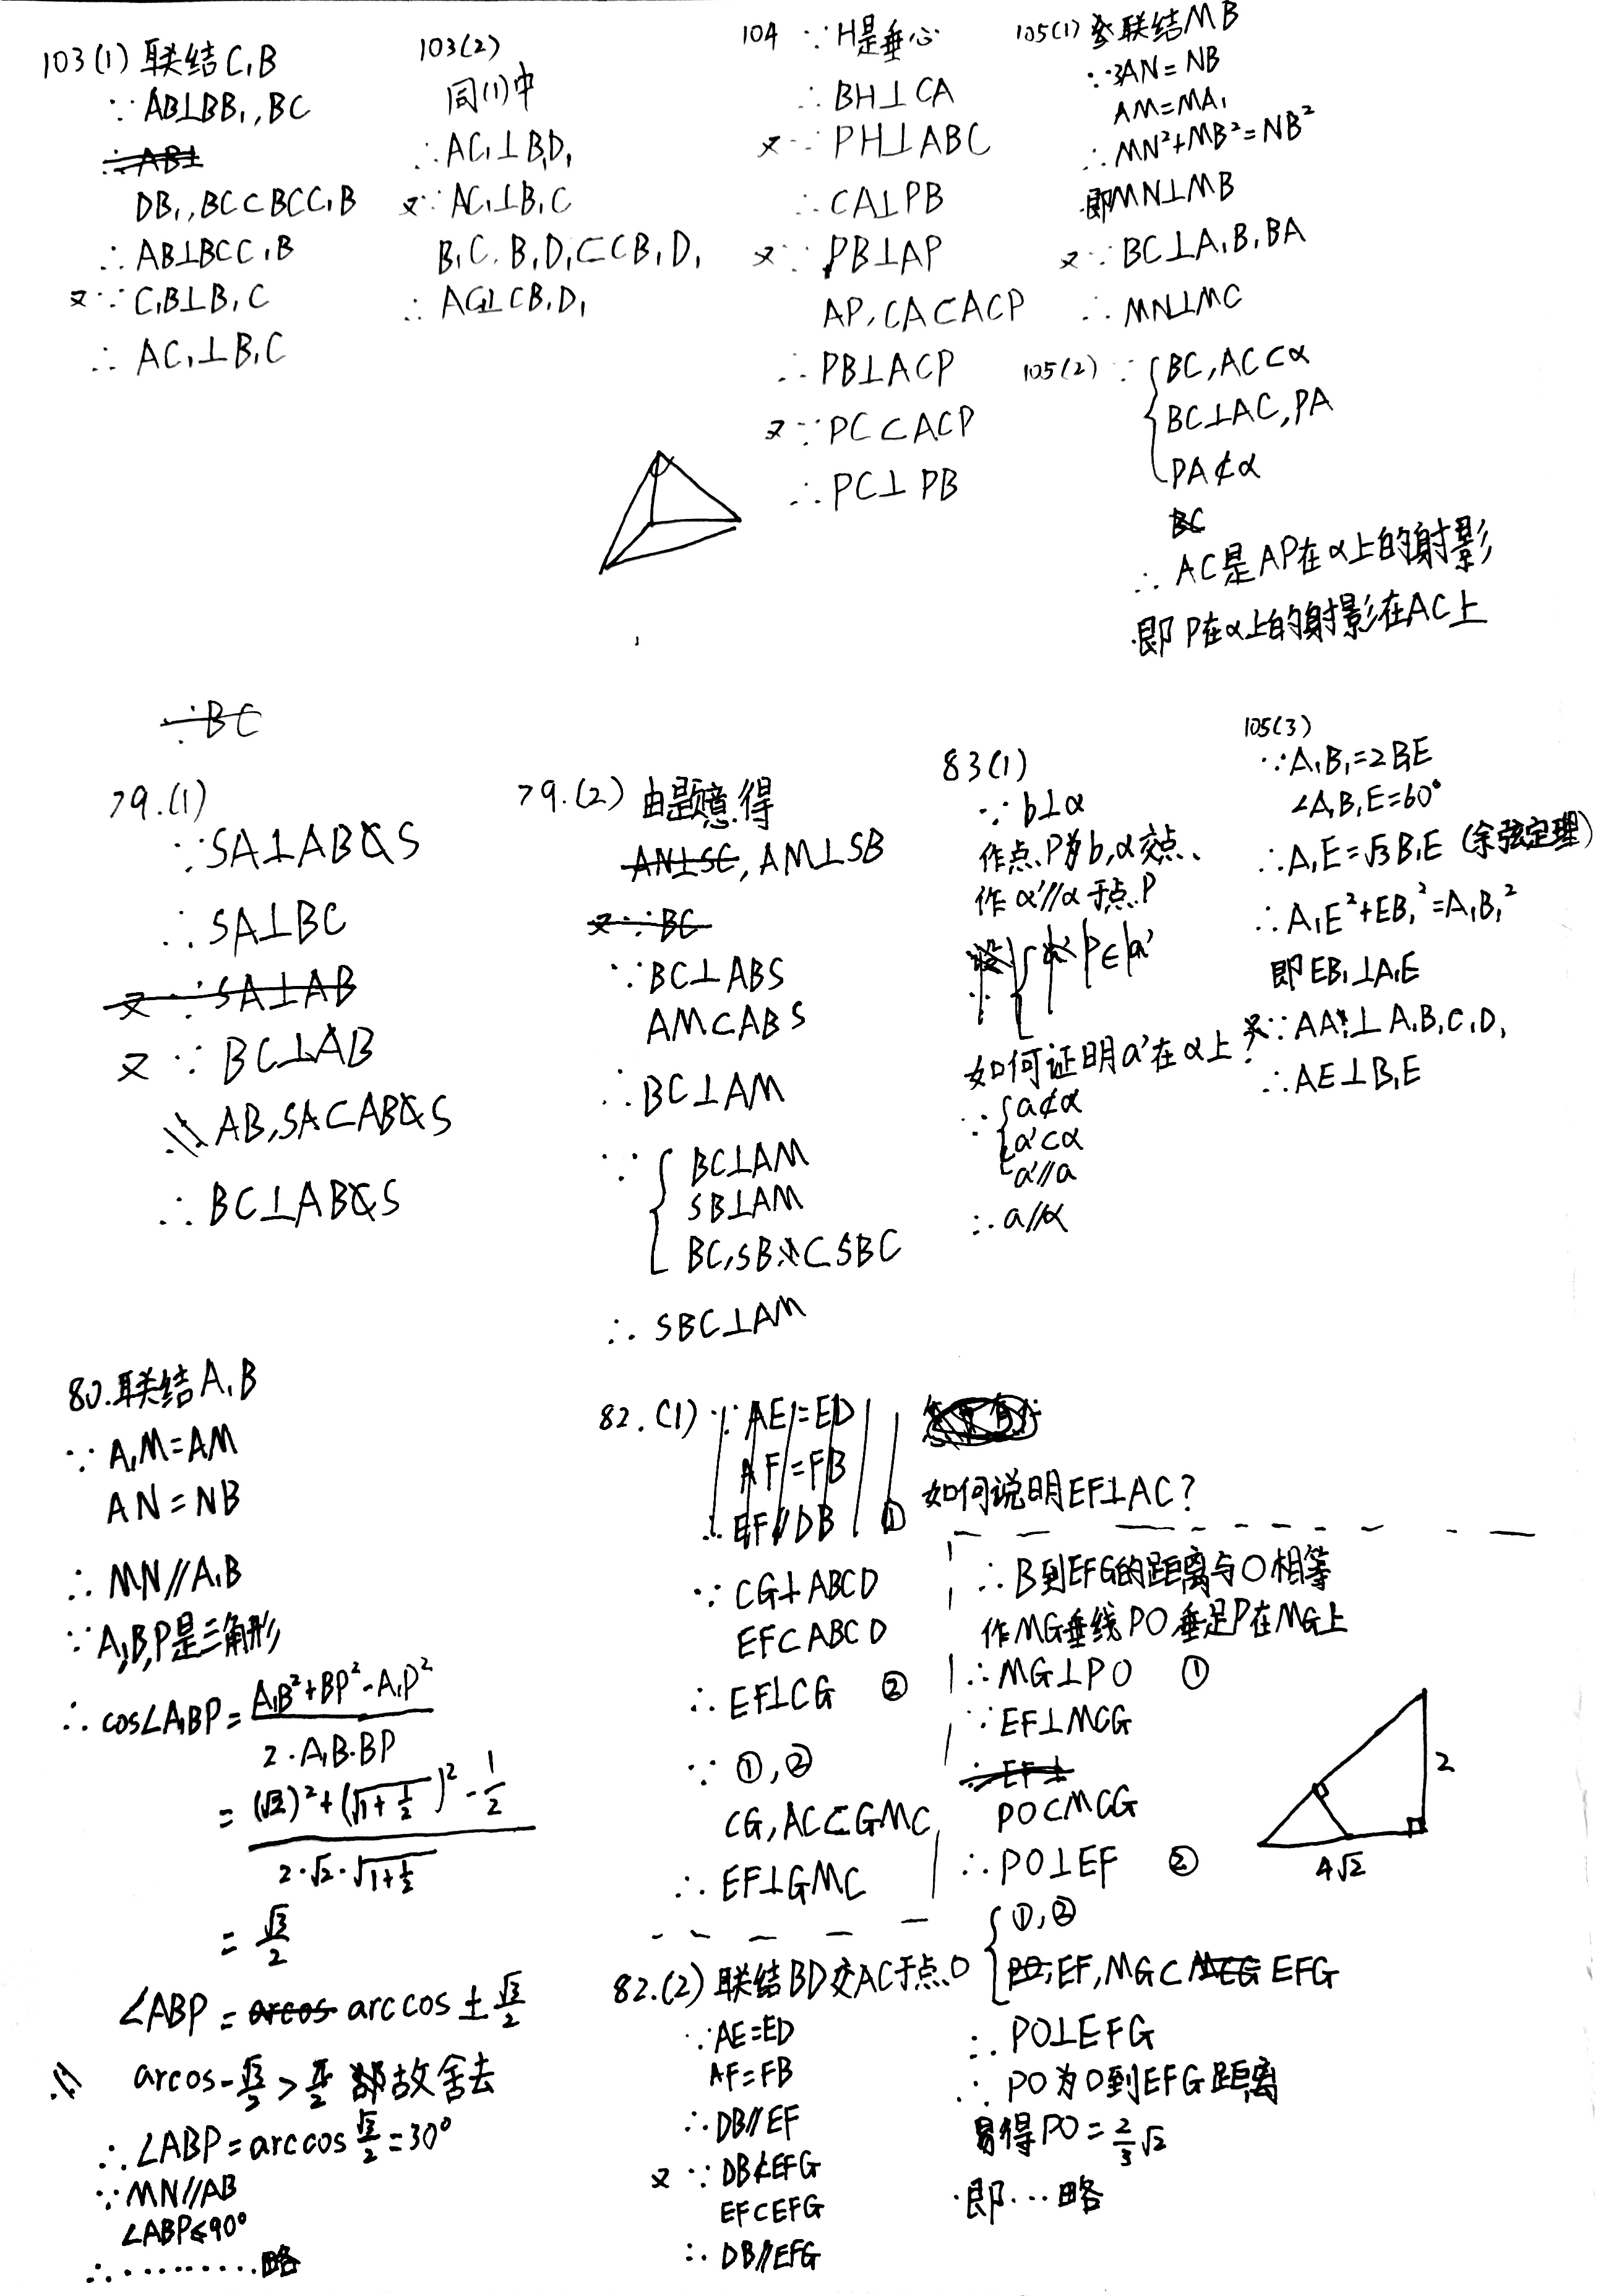 103(1) 联结C₁B
∵AB⊥BB₁,BC
∴AB⊥
DB₁,BC⊂BCC₁B
∴AB⊥BCC₁B
又∵C₁B⊥B₁C
∴AC₁⊥B₁C
103(2)
同(1)中
∴AC₁⊥B₁D₁
又∵AC₁⊥B₁C
B₁C,B₁D₁⊂CB₁D₁
∴AC₁⊥CB₁D₁
104 ∵H是垂心
∴BH⊥CA
又∵PH⊥ABC
∴CA⊥PB
又∵PB⊥AP
AP,CA⊂ACP
∴PB⊥ACP
又∵PC⊂ACP
∴PC⊥PB
105(1) 联结MB
∵3AN=NB
AM=MA₁
∴MN²+MB²=NB²
即MN⊥MB
又∵BC⊥A₁B₁BA
∴MN⊥MC
105(2) ∵BC,AC⊂α
BC⊥AC,PA
PA⊄α
BC
∴AC是AP在α上的射影
即P在α上的射影在AC上
∵BC
79.(1)
∵SA⊥ABS
∴SA⊥BC
又∵SA⊥AB
又∵BC⊥AB
AB,SA⊂ABS
∴BC⊥ABS
79.(2) 由题意得
AN⊥SC,AM⊥SB
又∵BC
∵BC⊥ABS
AM⊂ABS
∴BC⊥AM
∵BC⊥AM
SB⊥AM
BC,SB⊂SBC
∴SBC⊥AM
83(1)
∵b⊥α
作点P为b,α交点、
作α'//α于点P
P∈a'
如何证明a'在α上?
∵a⊄α
a'⊂α
a'//a
∴a//α
105(3)
∵A₁B₁=2B₁E
∠A₁B₁E=60°
∴A₁E=√3B₁E (余弦定理)
∴A₁E²+EB₁²=A₁B₁²
即EB₁⊥A₁E
又∵AA₁⊥A₁B₁C₁D₁
∴AE⊥B₁E
80.联结A₁B
∵A₁M=AM
AN=NB
∴MN//A₁B
∵A₁,B,P是三角形
∴cos∠A₁BP=(A₁B²+BP²-A₁P²)/(2·A₁B·BP)
=((√2)²+(√(1+1/2))²-1/2)/(2·√2·√(1+1/2))
=√3/2
∠ABP=arcos arccos±√3/2
arcos-√3/2>π/2 故舍去
∴∠ABP=arccos√3/2=30°
∵MN//AB
∠ABP≤90°
∴………略
82.(1) ∵AE=ED
AF=FB
∴EF//DB ①
∵CG⊥ABCD
EF⊂ABCD
∴EF⊥CG ②
∵①,②
CG,AC⊂GMC
∴EF⊥GMC
如何说明EF⊥AC?
82.(2) 联结BD交AC于点O
∵AE=ED
AF=FB
∴DB//EF
又∵DB⊄EFG
EF⊂EFG
∴DB//EFG
∴B到EFG的距离与O相等
作MG垂线PO垂足P在MG上
∴MG⊥PO ①
∵EF⊥MCG
∵EF⊥
PO⊂MCG
∴PO⊥EF ②
①,②
PO,EF,MG⊂MCG EFG
∴PO⊥EFG
∴PO为O到EFG距离
易得PO=2/3√2
即…略
2
4√2